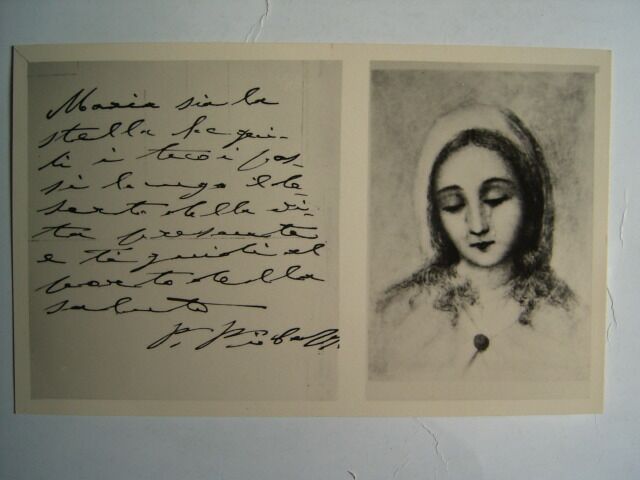 Maria sia la
stella che gui-
di i tuoi pas-
si lungo il de-
serto della vi-
ta presente
e ti guidi al
porto della
salute
P. Pio